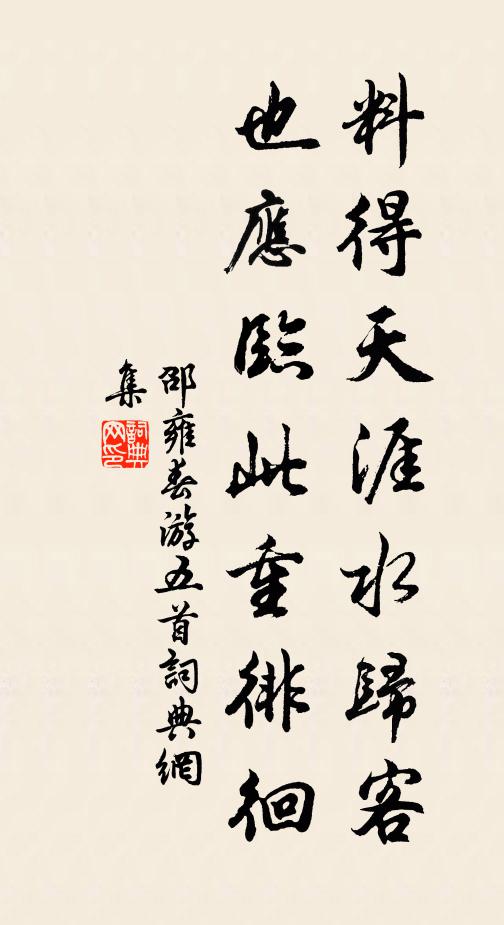 料得天涯水歸客
也應臨此重徘徊
邵雍春游五首詞典網
集
詞典
网印